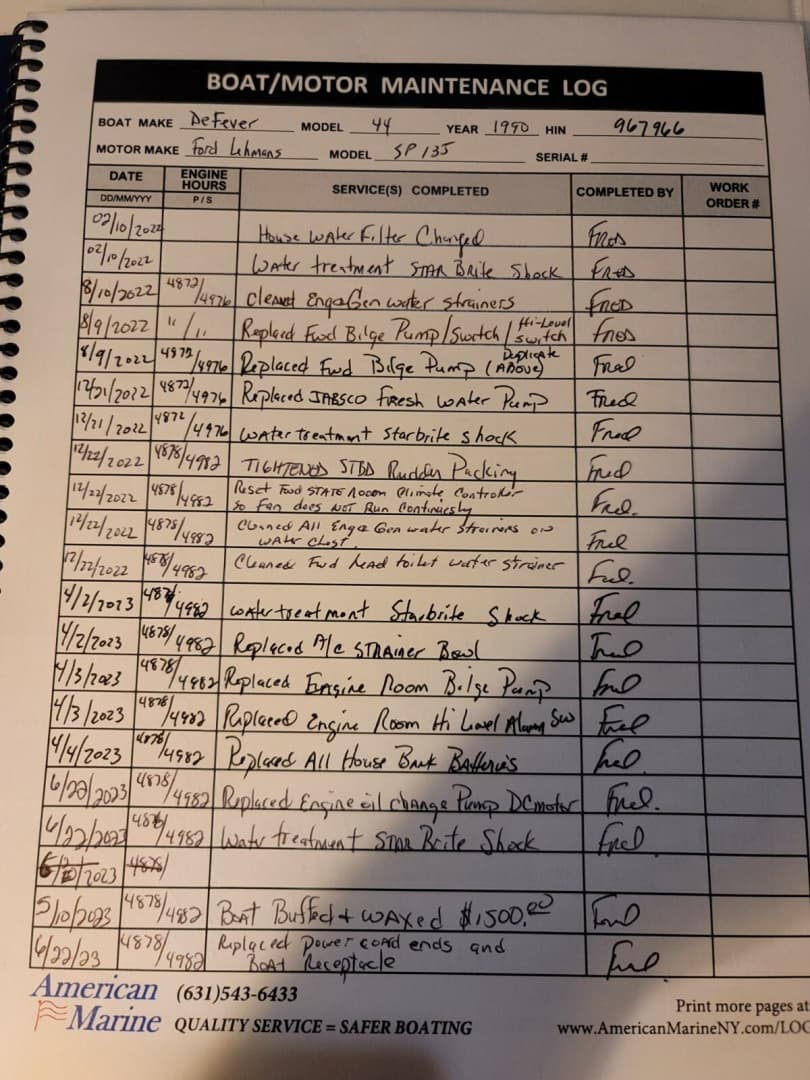 BOAT/MOTOR MAINTENANCE LOG
BOAT MAKE DeFever MODEL 44 YEAR 1990 HIN 967966
MOTOR MAKE Ford Lehmans MODEL SP 135 SERIAL #
DATE ENGINE HOURS SERVICE(S) COMPLETED COMPLETED BY WORK ORDER #
DD/MM/YYY P/S
02/10/2022 House Water Filter Changed Fred
02/10/2022 Water treatment STAR Brite Shock FRED
8/10/2022 4872/4976 Cleaned Eng&Gen water strainers FRED
8/9/2022 "/" Replaced Fwd Bilge Pump/Switch/Hi-Level switch FRED
8/9/2022 4872/4976 Replaced Fwd Bilge Pump (Duplicate ABOVE) Fred
12/21/2022 4872/4976 Replaced JABSCO Fresh Water Pump Fred
12/21/2022 4872/4976 Water treatment Starbrite shock Fred
12/22/2022 4878/4982 TIGHTENED STBD Rudder Packing Fred
12/22/2022 4878/4982 Reset Fwd STATE Room Climate Controller
so Fan does NOT Run Continuesly Fred.
12/22/2022 4878/4982 Cleaned All Eng& Gen water Strainers
water chest. Fred
12/22/2022 4878/4982 Cleaned Fwd head toilet water strainer Fred.
4/2/2023 4878/4982 water treatment Starbrite Shock Fred
4/2/2023 4878/4982 Replaced A/c STRAINER Bowl Fred
4/3/2023 4878/4982 Replaced Engine Room Bilge Pump Fred
4/3/2023 4878/4982 Replaced Engine Room Hi Level Alarm Sw Fred
4/4/2023 4878/4982 Replaced All House Bank Batteries Fred
6/22/2023 4878/4982 Replaced Engine oil change Pump DC motor Fred.
6/22/2023 4878/4982 Water treatment STAR Brite Shock Fred
2023 4878/
5/10/2023 4878/4982 Boat Buffed + waxed $1,500.00 Fred
6/22/23 4878/4982 Replaced power cord ends and
Boat Receptacle Fred
American Marine (631)543-6433
QUALITY SERVICE = SAFER BOATING
Print more pages at
www.AmericanMarineNY.com/LOG